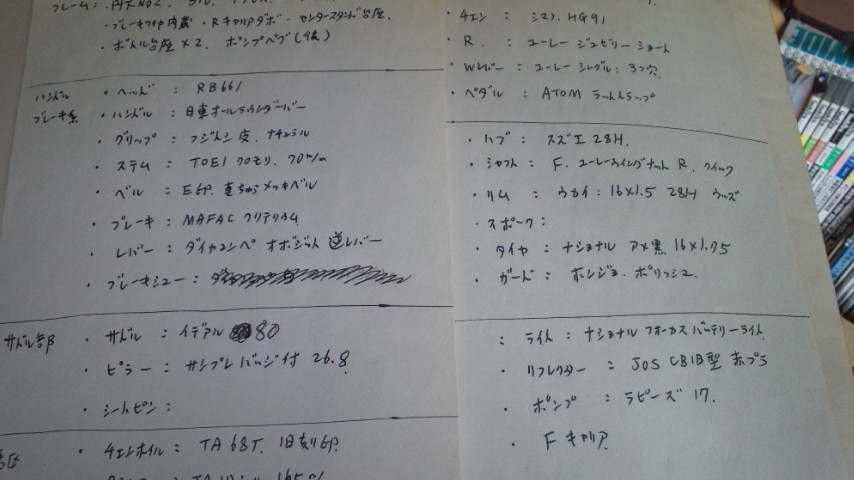 ・ブレーキワイヤ内蔵・Rキャリアダボ・センタースタンド台座、
・ボトル台座×2、ポンプペグ(後)
ハンドル
ブレーキ系
・ヘッド : RB661
・ハンドル : 日東オールラウンダーバー
・グリップ : フジトシ 皮、ナチュラル
・ステム : TOEI クロモリ、70m/m
・ベル : E印、真ちゅうメッキベル
・ブレーキ : MAFAC クリテリウム
・レバー : ダイヤコンペ オポジット 逆レバー
・ブレーキシュー :
サドル部
・サドル : イデアル 80
・ピラー : サンプレ バッジ付 26.8
・シートピン :
・チェンホイル : TA 68T、旧刻印
・チェン : シマノ HG91
・R. : ユーレー ジュビリー ショート
・Wレバー : ユーレー シングル : 3つ穴
・ペダル : ATOM ラットトラップ
・ハブ : スズエ 28H.
・シャフト : F. ユーレーウイングナット R. クイック
・リム : ウカイ : 16×1.5 28H ウッズ
・スポーク :
・タイヤ : ナショナル アメ黒 16×1.75
・ガード : ホンジョ、ポリッシュ
: ライト : ナショナル フォーカス バッテリーライト
・リフレクター : JOS CB1旧型 赤プラ
・ポンプ : ラピーズ 17.
・F キャリア